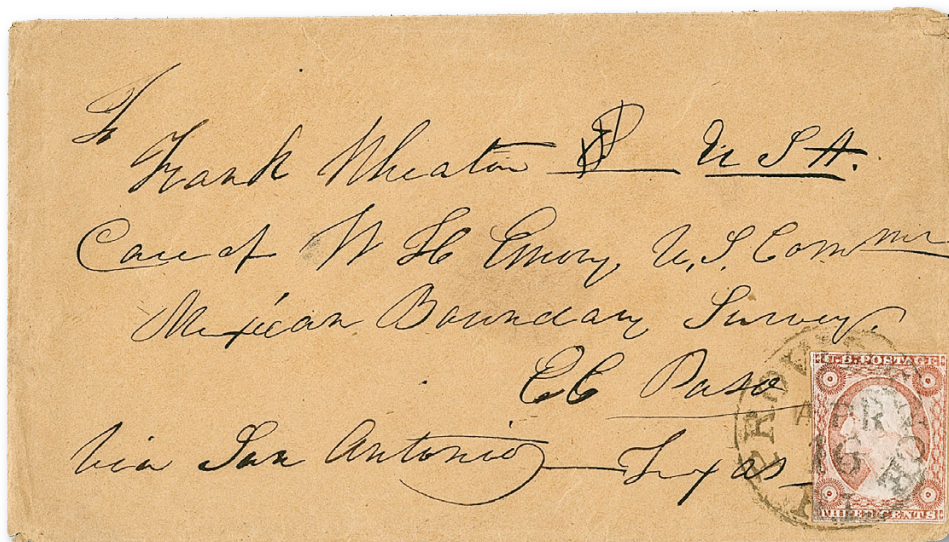 To
Frank Wheaton U S A.
Care of W H Emory, U. S. Commr
Mexican Boundary Survey,
El Paso
via San Antonio Texas
PROVIDENCE
APR
16
R.I.
U.S. POSTAGE
THREE CENTS